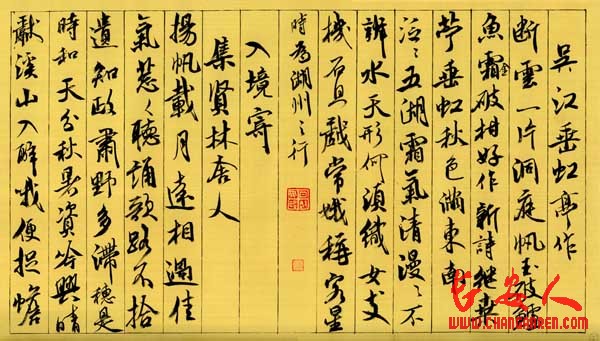 吴江垂虹亭作
断雲一片洞庭帆玉破鱸
魚霜金破柑好作新詩継桑
苧垂虹秋色滿東南
泛〻五湖霜氣清漫〻不
辨水天形何須織女支
機石且戲常娥稱客星
時為湖州之行
入境寄
集賢林舍人
揚帆載月遠相過佳
氣葱〻聽誦歌路不拾
遺知政肅野多滯穗是
時和天分秋暑資吟興晴
獻溪山入醉哦便捉蟾
长安人
WWW.CHANGANREN.COM